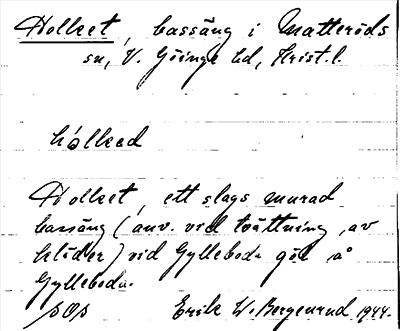 Holket, bassäng i Matteröds
sn, V. Göinge hd, Krist. l.
hólked
Holket, ett slags murad
bassäng (anv. vid tvättning av
kläder) vid Gylleboda göl å
Gylleboda.
Erik W. Bergenrud 1944.